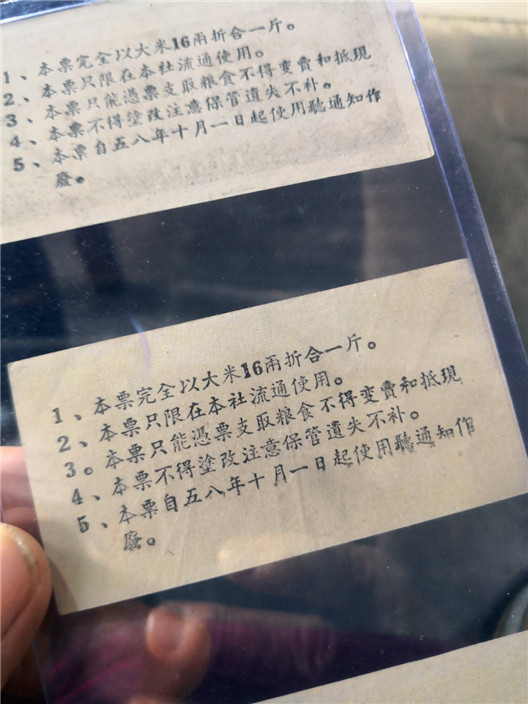 1、本票完全以大米16兩折合一斤。
2、本票只限在本社流通使用。
3、本票只能憑票支取粮食不得变賣和抵現
4、本票不得塗改注意保管遺失不补。
5、本票自五八年十月一日起使用聽通知作
廢。
1、本票完全以大米16兩折合一斤。
2、本票只限在本社流通使用。
3。本票只能憑票支取粮食不得变賣和抵現
4、本票不得塗改注意保管遺失不补。
5、本票自五八年十月一日起使用聽通知作
廢。